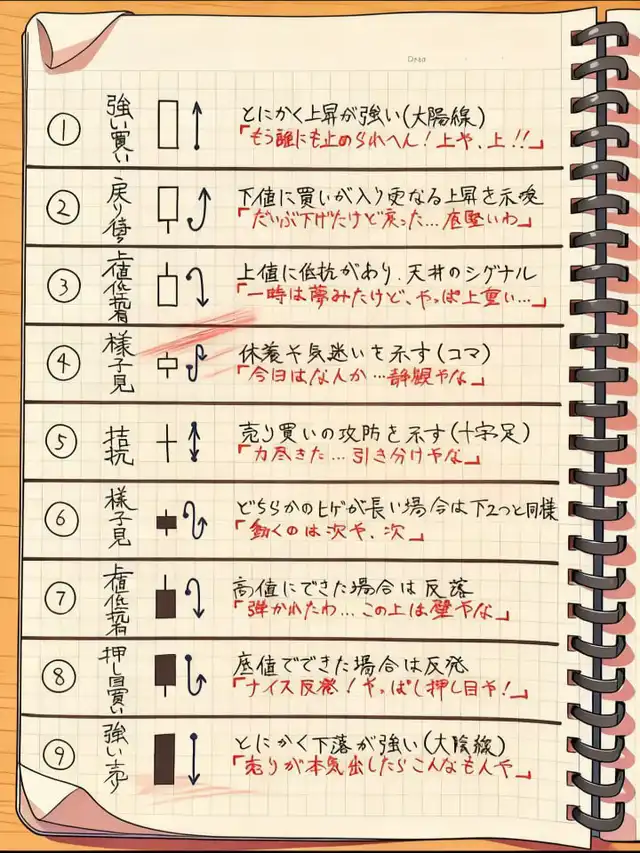 Date
① 強い買い
とにかく上昇が強い(大陽線)
「もう誰にも止められへん！上や、上!!」
② 戻り待ち
下値に買いが入り更なる上昇を示唆
「だいぶ下げたけど戻った…底堅いわ」
③ 上値抵抗有
上値に低抗があり、天井のシグナル
「一時は夢みたけど、やっぱ上重い…」
④ 様子見
休養や気迷いを示す(コマ)
「今日はなんか…静観やな」
⑤ 拮抗
売り買いの攻防を示す(十字足)
「力尽きた…引き分けやな」
⑥ 様子見
どちらかのヒゲが長い場合は下2つと同様
「動くのは次や、次」
⑦ 上値低抗有
高値にできた場合は反落
「弾かれたわ…この上は壁やな」
⑧ 押し目買い
底値でできた場合は反発
「ナイス反発！やっぱし押し目や！」
⑨ 強い売り
とにかく下落が強い(大陰線)
「売りが本気出したらこんなもんや」